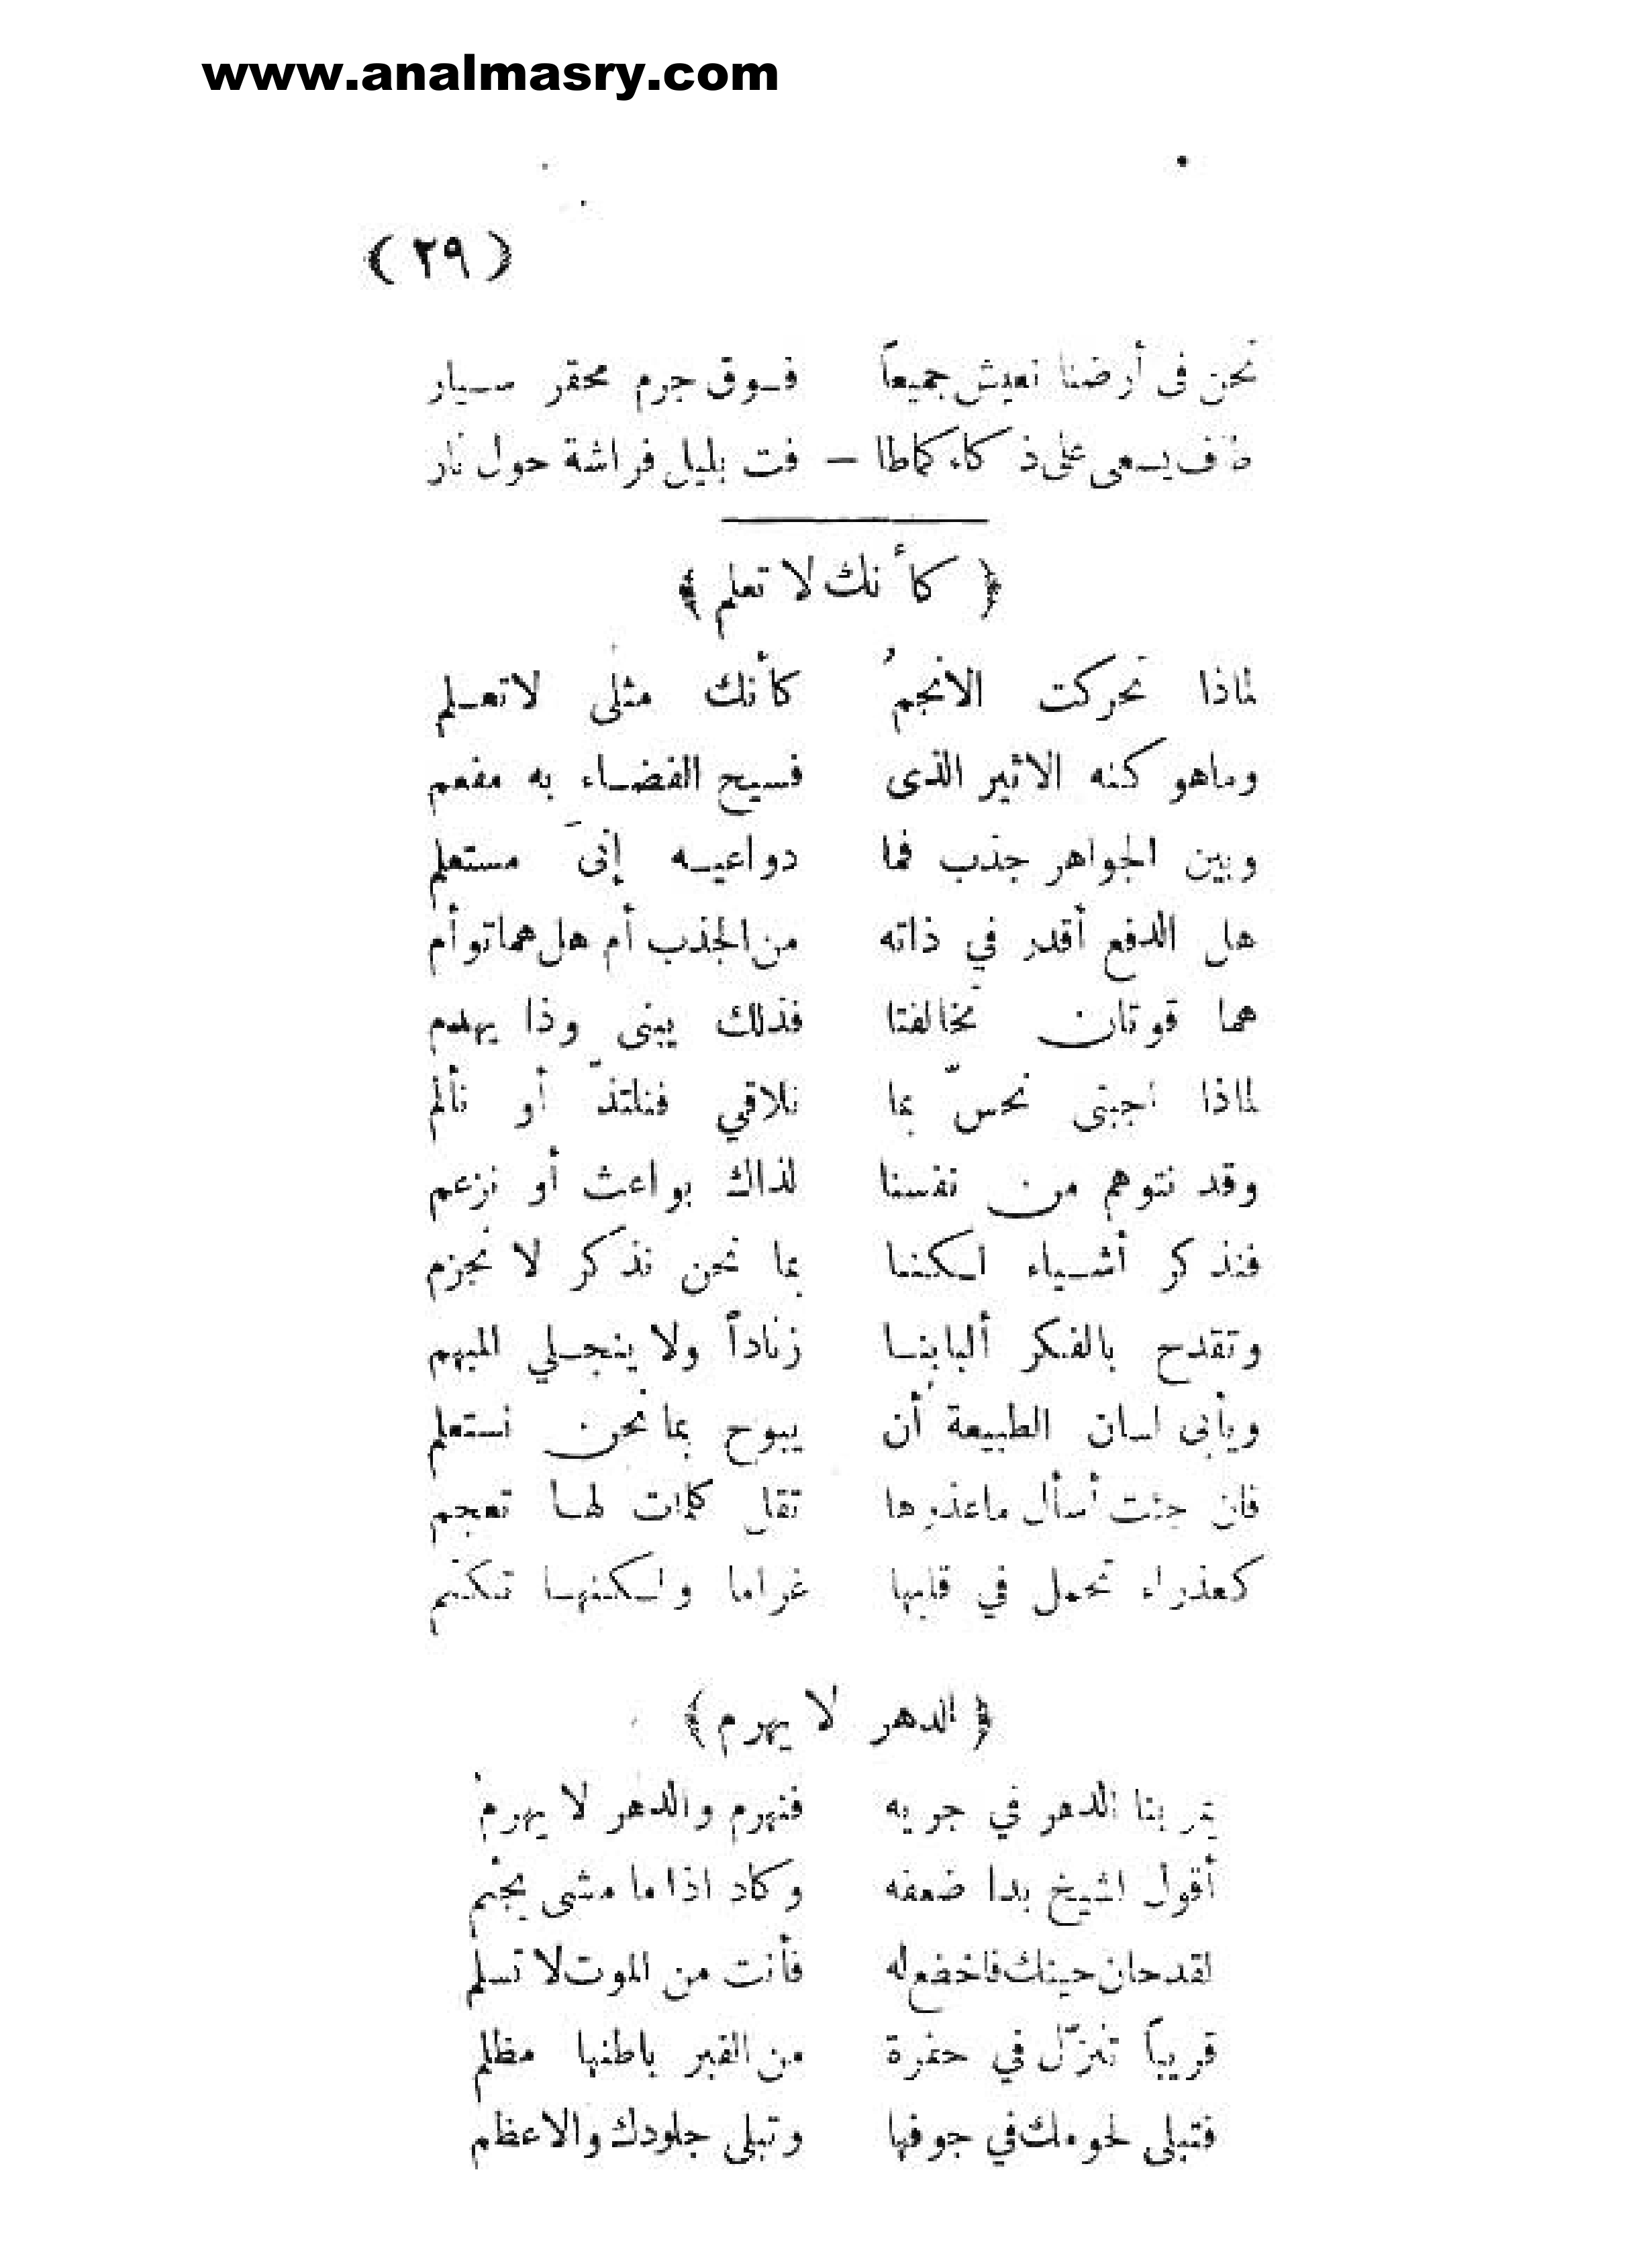 www.analmasry.com
( ٢٩ )
نحن فى أرضنا نعيش جميعاً فـوق جرم محقر سـيار
طاف يسعى على ذكاء كماطا – فت بليل فراشة حول نار
﴿ كأنك لا تعلم ﴾
لماذا تحركت الانجمُ كأنك مثلى لاتعـلم
وماهو كنه الاثير الذى فسيح الفضـاء به مفعم
وبين الجواهر جذب فما دواعيـه إنى مستعلم
هل الدفع أقدر في ذاته من الجذب أم هل هماتوأم
هما قوتان تخالفتا فذلك يبنى وذا يهدم
لماذا اجبنى نحسّ بما نلاقي فنلتذّ أو نألم
وقد نتوهم من نفسنا لذاك بواعث أو نزعم
فنذكر أشـياء لـكننا بما نحن نذكر لا نجزم
وتقدح بالفكر ألبابنـا زناداً ولا ينجـلي المبهم
ويأبى لسان الطبيعة أن يبوح بما نحن نستعلم
فان جئت أسأل ماعذرها تقل كلمات لهـا تعجم
كعذراء تحمل في قلبها غراما ولـكنهـا تـكتم
﴿ الدهر لا يهرم ﴾
يمر بنا الدهر في جريه فنهرم والدهر لا يهرمُ
أقول لشيخ بدا ضعفه وكاد اذا ما مشى يجثم
لقد حان حينك فاخضع له فأنت من الموت لا تسلم
قريباً تنزّل في حفرة من القبر باطنها مظلم
فتبلى لحومك في جوفها وتبلى جلودك والاعظم